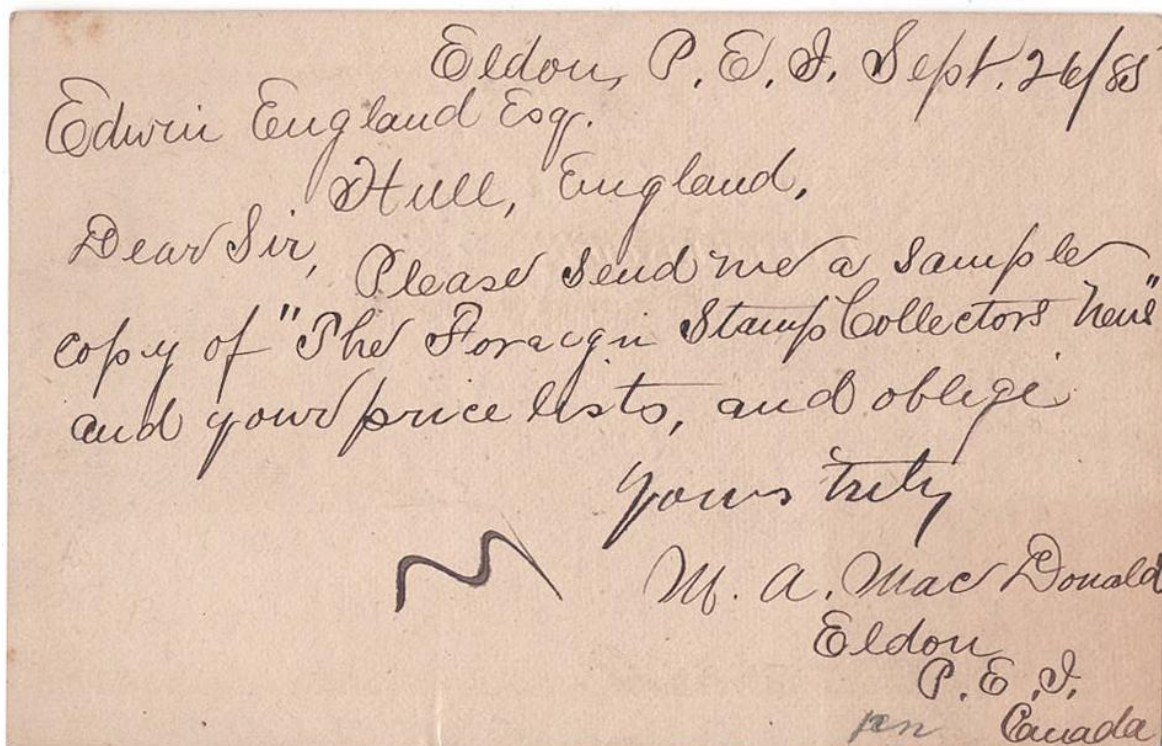 Eldon, P. E. I. Sept. 26/85
Edwin England Esq.
Hull, England,
Dear Sir,
Please send me a sample
copy of "The Foraign Stamp Collectors News"
and your price lists, and oblige
yours truly
M. A. MacDonald
Eldon
P. E. I.
Canada